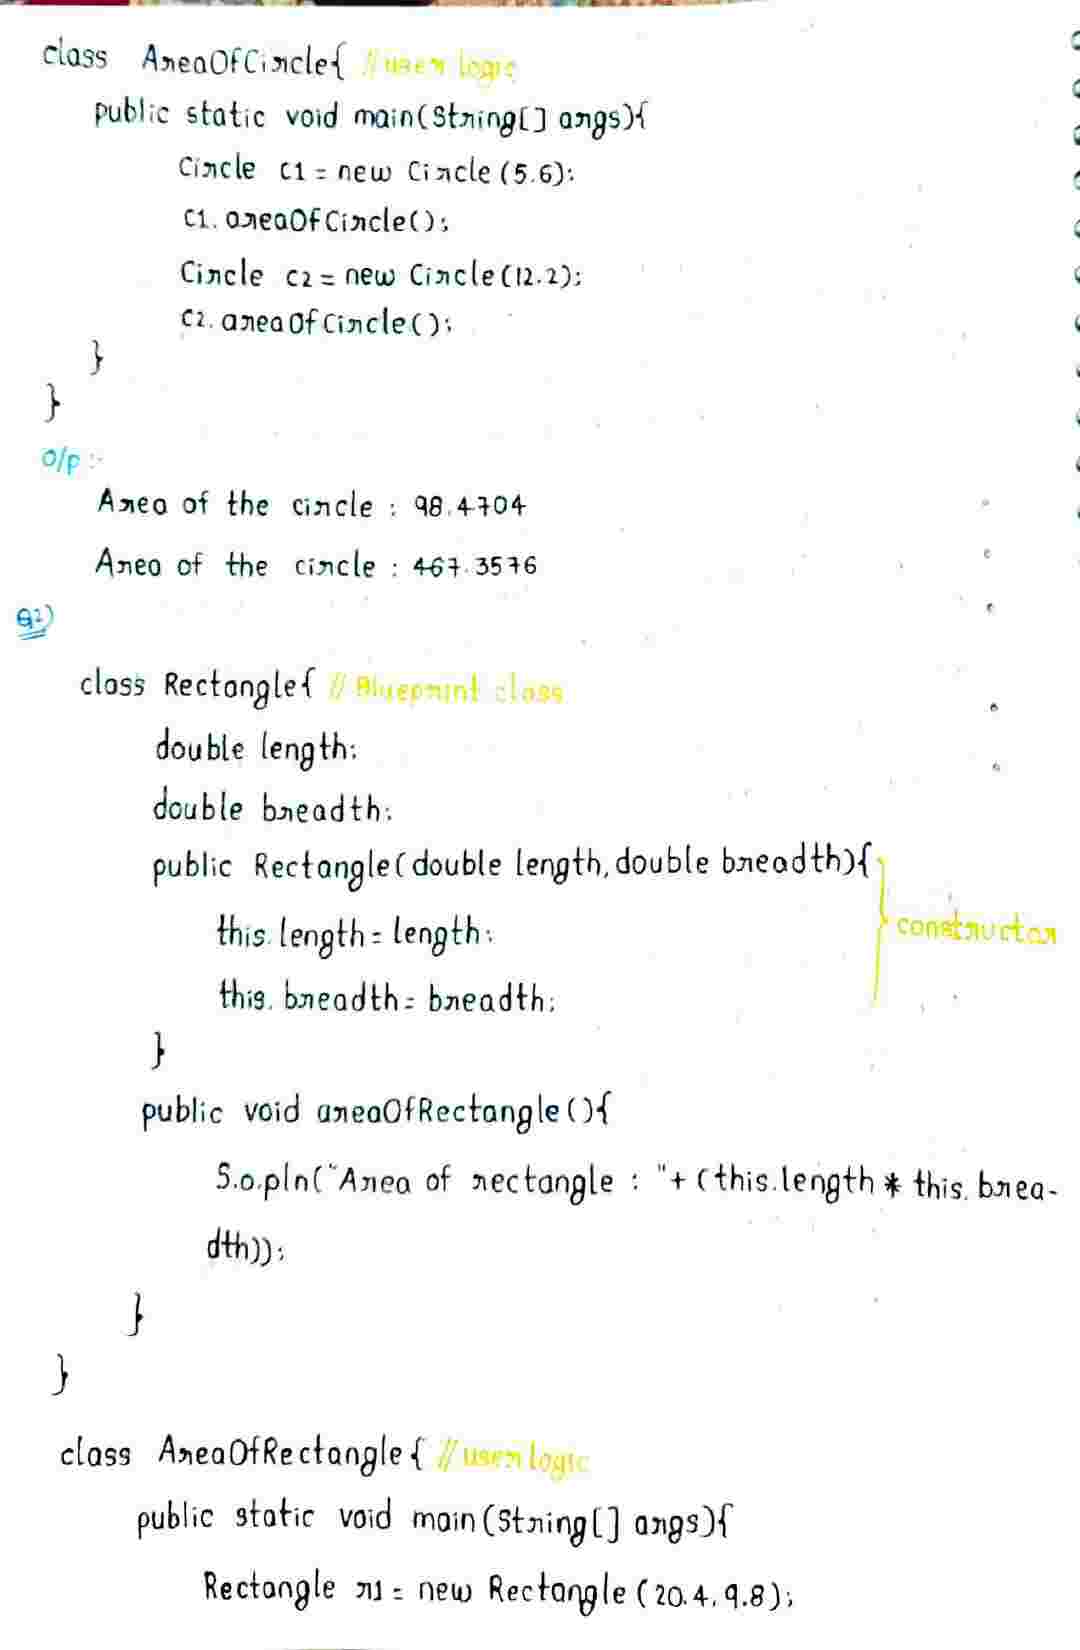 class AreaOfCircle{ //user logic
public static void main(String[] args){
Circle c1 = new Circle(5.6);
c1.areaOfCircle();
Circle c2 = new Circle(12.2);
c2.areaOfCircle();
}
}
O/p :-
Area of the circle : 98.4704
Area of the circle : 467.3576
Q2)
class Rectangle{ // Blueprint class
double length;
double breadth;
public Rectangle(double length, double breadth){
constructor
this.length = length;
this.breadth = breadth;
}
public void areaOfRectangle(){
S.o.pln("Area of rectangle : "+ (this.length * this.brea-
dth));
}
}
class AreaOfRectangle{ //user logic
public static void main(String[] args){
Rectangle r1 = new Rectangle (20.4, 9.8);